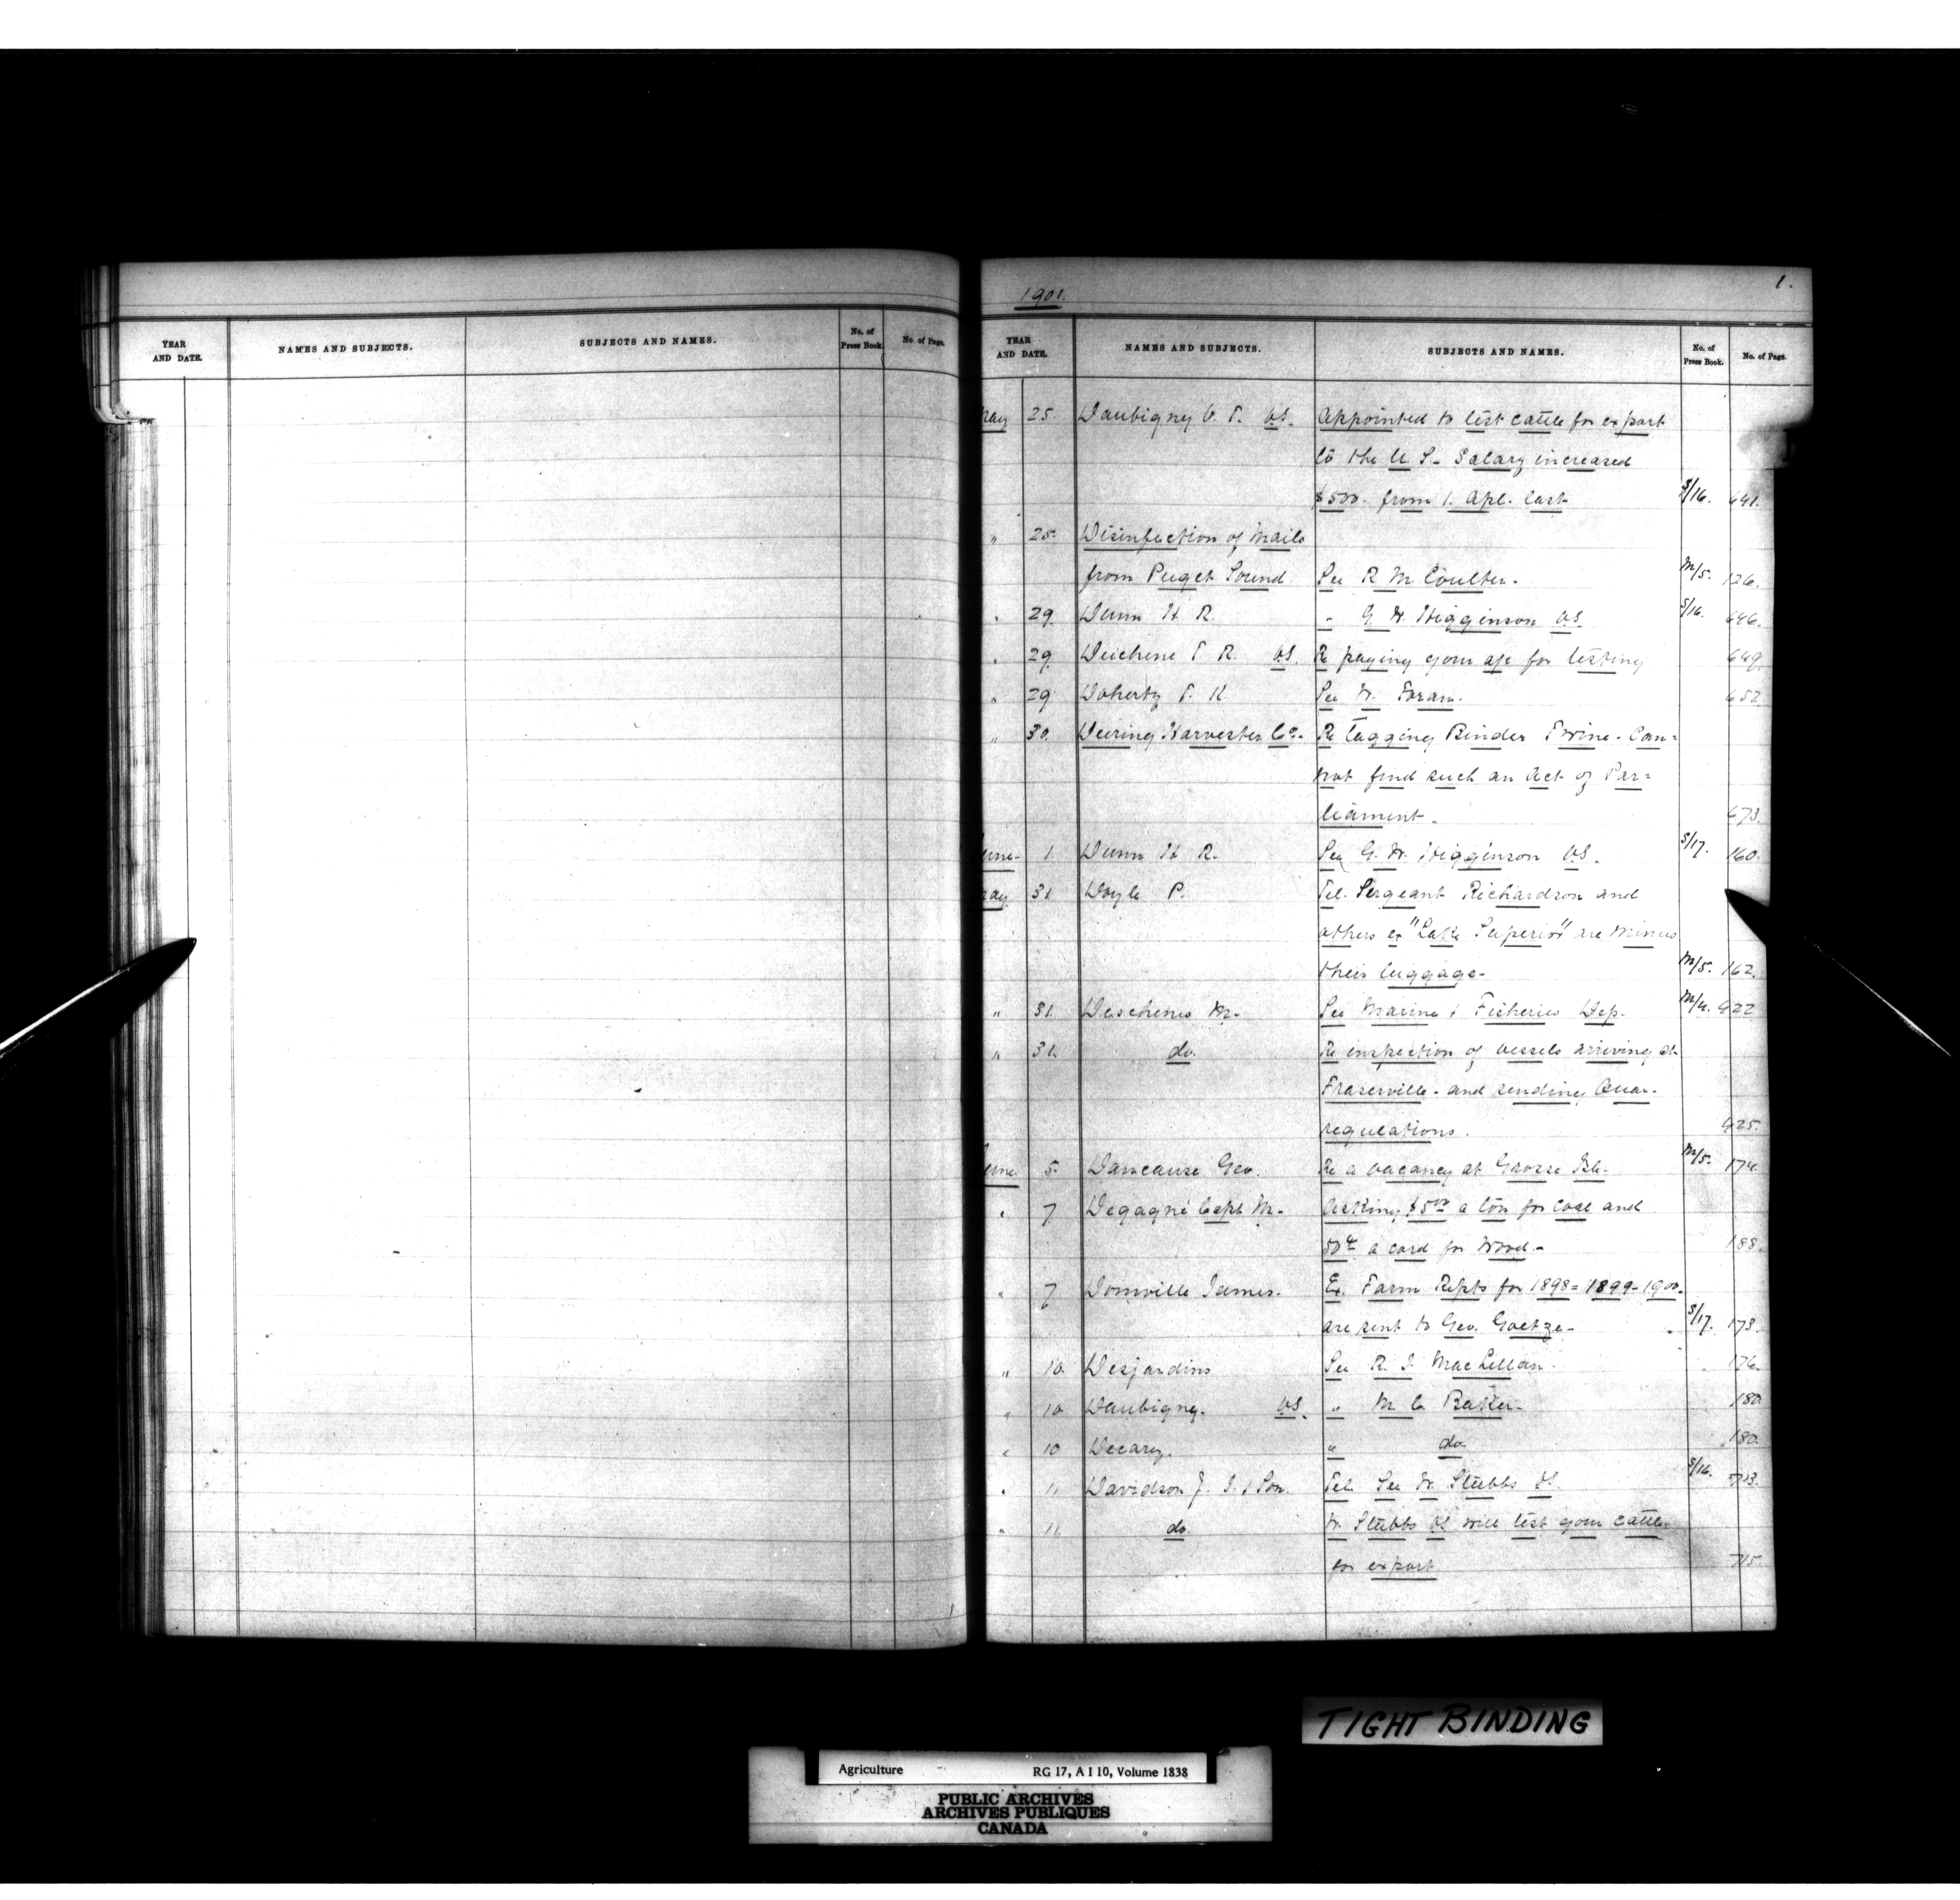 YEAR AND DATE. NAMES AND SUBJECTS. SUBJECTS AND NAMES. No. of Press Book. No. of Page.
1.
1901.
YEAR AND DATE. NAMES AND SUBJECTS. SUBJECTS AND NAMES. No. of Press Book. No. of Page.
May 25. Daubigny V. T. V.S. Appointed to test cattle for export
to the U. S. Salary increased
$500. from 1. Apl. last S/16. 641.
" 25. Disinfection of Mails
from Puget Sound See R M Coulter. M/5. 126.
" 29. Dunn H R. " G. W. Higginson V.S. S/16. 646.
" 29 Deichene T R. V.S. Re paying your a/c for testing 649.
" 29 Doherty T. K. See W. Foran. 652.
" 30. Deering Harvester Co. Re Tagging Binder Twine. Can=
not find such an Act of Par=
liament. 673.
June 1. Dunn H R. See G. W. Higginson V.S. S/17. 160.
May 31 Doyle P. Tel. Sergeant Richardson and
others ex "Lake Superior" are minus
their luggage. M/5. 162.
" 31. Deschenes M. See Marine & Fisheries Dep. M/4. 922
" 31. do. Re inspection of vessels arriving at
Fraserville. and sending Quar.
regulations. 925.
June 5. Dancause Geo. Re a vacancy at Grosse Isle. M/5. 174.
" 7 Degagné Capt M. Asking $5.00 a ton for Coal and
50¢ a cord for Wood. 188.
" 7 Domville James. Ex. Farm Repts for 1898 = 1899 - 1900.
are sent to Geo. Goetze. S/17. 173.
" 10. Desjardins See R. J. MacLellan. 176.
" 10 Daubigny. V.S. " M C. Baker. 180.
" 10 Decary. " do. 180.
" 11. Davidson J. I. & Son. Tel. See W. Stubbs V.S. S/16. 713.
" 11. do. W. Stubbs V.S. will test your cattle
for export 715.
TIGHT BINDING
Agriculture RG 17, A I 10, Volume 1838
PUBLIC ARCHIVES
ARCHIVES PUBLIQUES
CANADA